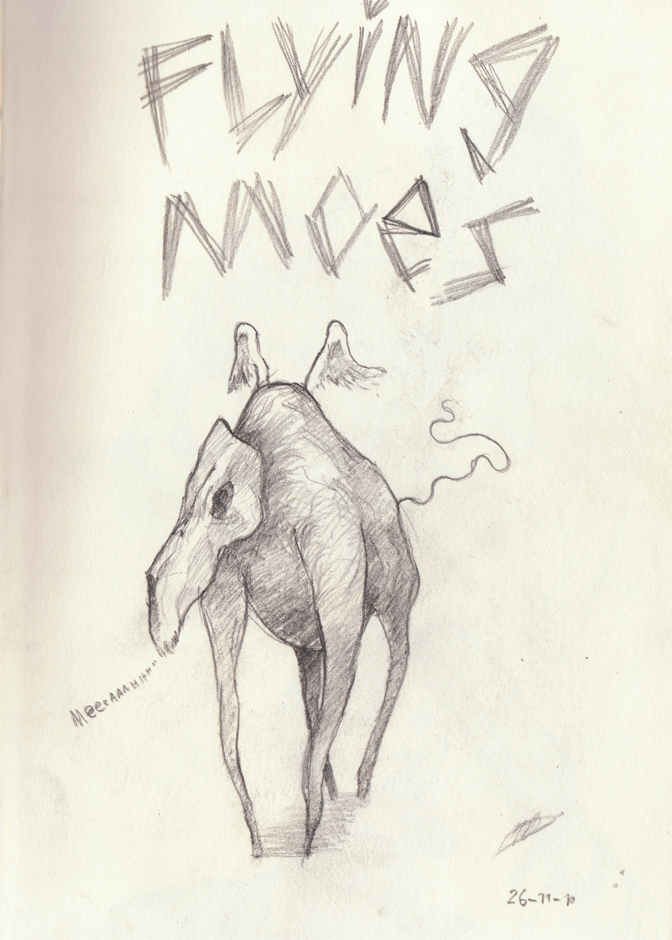 FLYiNg
MOeS
MeeeAAAHHH
26-11-10